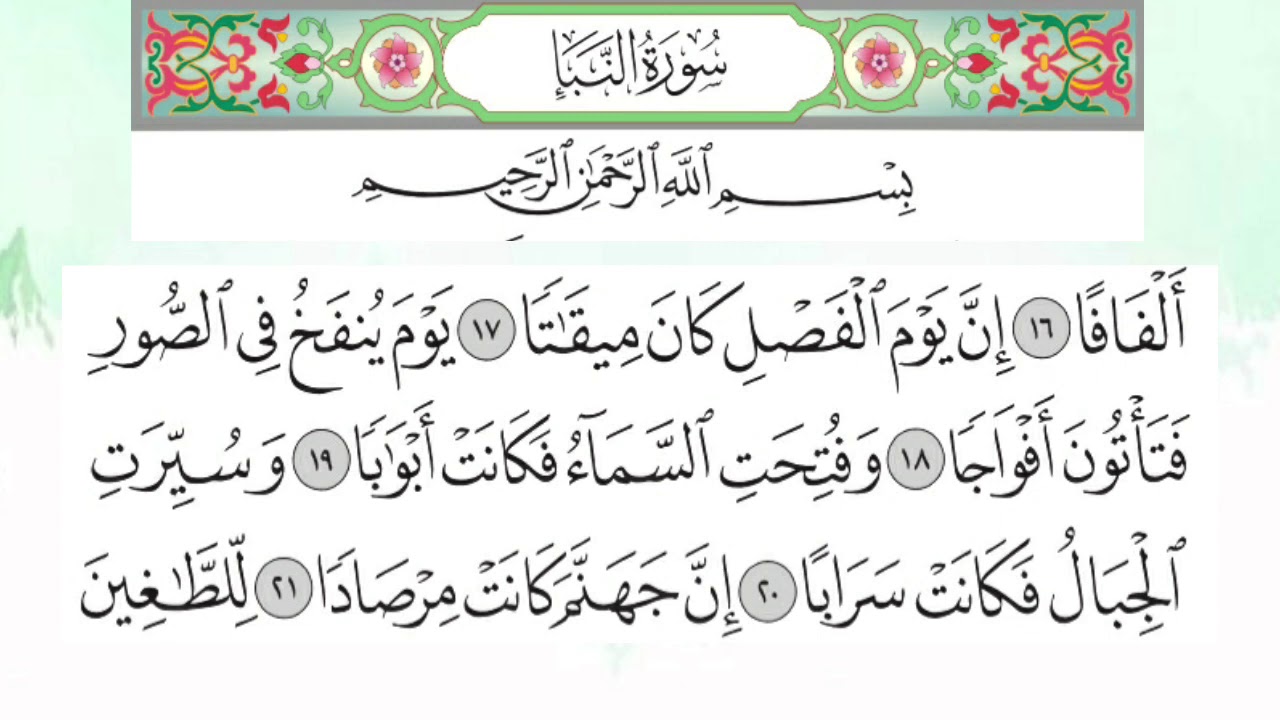 سُورَةُ النَّبَإِ
بِسْمِ ٱللَّهِ ٱلرَّحْمَٰنِ ٱلرَّحِيمِ
أَلْفَافًا ١٦ إِنَّ يَوْمَ ٱلْفَصْلِ كَانَ مِيقَٰتًا ١٧ يَوْمَ يُنفَخُ فِى ٱلصُّورِ
فَتَأْتُونَ أَفْوَاجًا ١٨ وَفُتِحَتِ ٱلسَّمَآءُ فَكَانَتْ أَبْوَٰبًا ١٩ وَسُيِّرَتِ
ٱلْجِبَالُ فَكَانَتْ سَرَابًا ٢٠ إِنَّ جَهَنَّمَ كَانَتْ مِرْصَادًا ٢١ لِّلطَّٰغِينَ